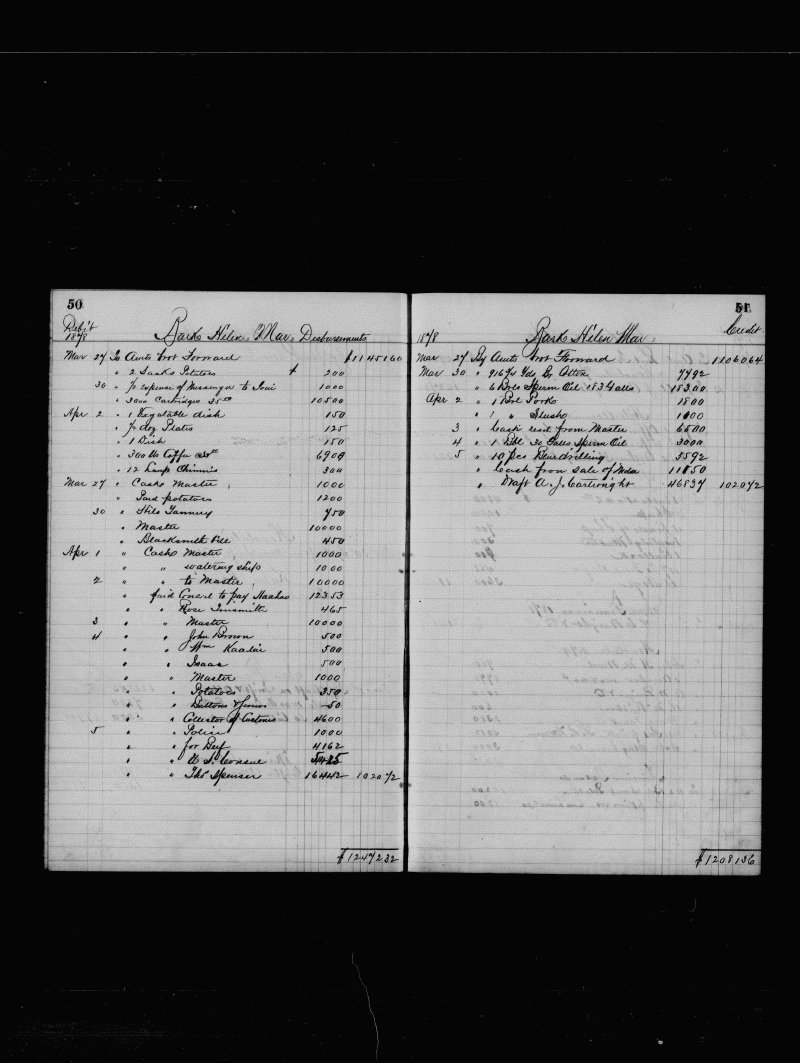 50
Debit
1878 Bark Helen Mar Disbursements
Mar 27 To Amts brot Forward $ 11451 60
" 2 Sacks Potatoes 2 00
30 " Expense of Messenger to 10 00
" 3000 Cartridges 35 105 00
Apr 2 " 1 Vegetable dish 1 50
" ½ doz Plates 1 25
" 1 Dish 1 50
" 300 lbs Coffee 69 00
" 12 Lamp Chimnies 3 00
Mar 27 " Cash Master 10 00
" Paid potatoes 12 00
30 " Hilo Tannery 7 50
" Master 100 00
" Blacksmith Bill 4 50
Apr 1 " Cash Master 10 00
" " watering ship 10 00
2 " " to Master 100 00
" paid to pay 123 53
" " Rose Tinsmith 4 65
3 " " Master 100 00
4 " " John Brown 5 00
" " Wm 5 00
" " Isaac 5 00
" " Master 10 00
" " Potatoes 3 50
" " Buttons 50
" " Collector of Customs 46 00
5 " " Police 10 00
" " for Beef 41 62
" " U S Consul
" " Thos Spenser 164 42 1020 72
$ 12472 32
51
Credit
1878 Bark Helen Mar
Mar 27 By Amts brot Forward 11060 64
Mar 30 " 916 ¾ Yds 77 92
" 6 Bbls Sperm Oil 183 Galls 183 00
Apr 2 " 1 Bbl Pork 18 00
" 1 " Slush 10 00
3 " Cash recd from Master 65 00
4 " 1 Bbl 30 Galls Sperm Oil 30 00
5 " 10 pcs Blue drilling 55 92
" Cash from sale of 112 50
" Draft A. J. Cartwright 468 37 1020 72
$ 12081 36